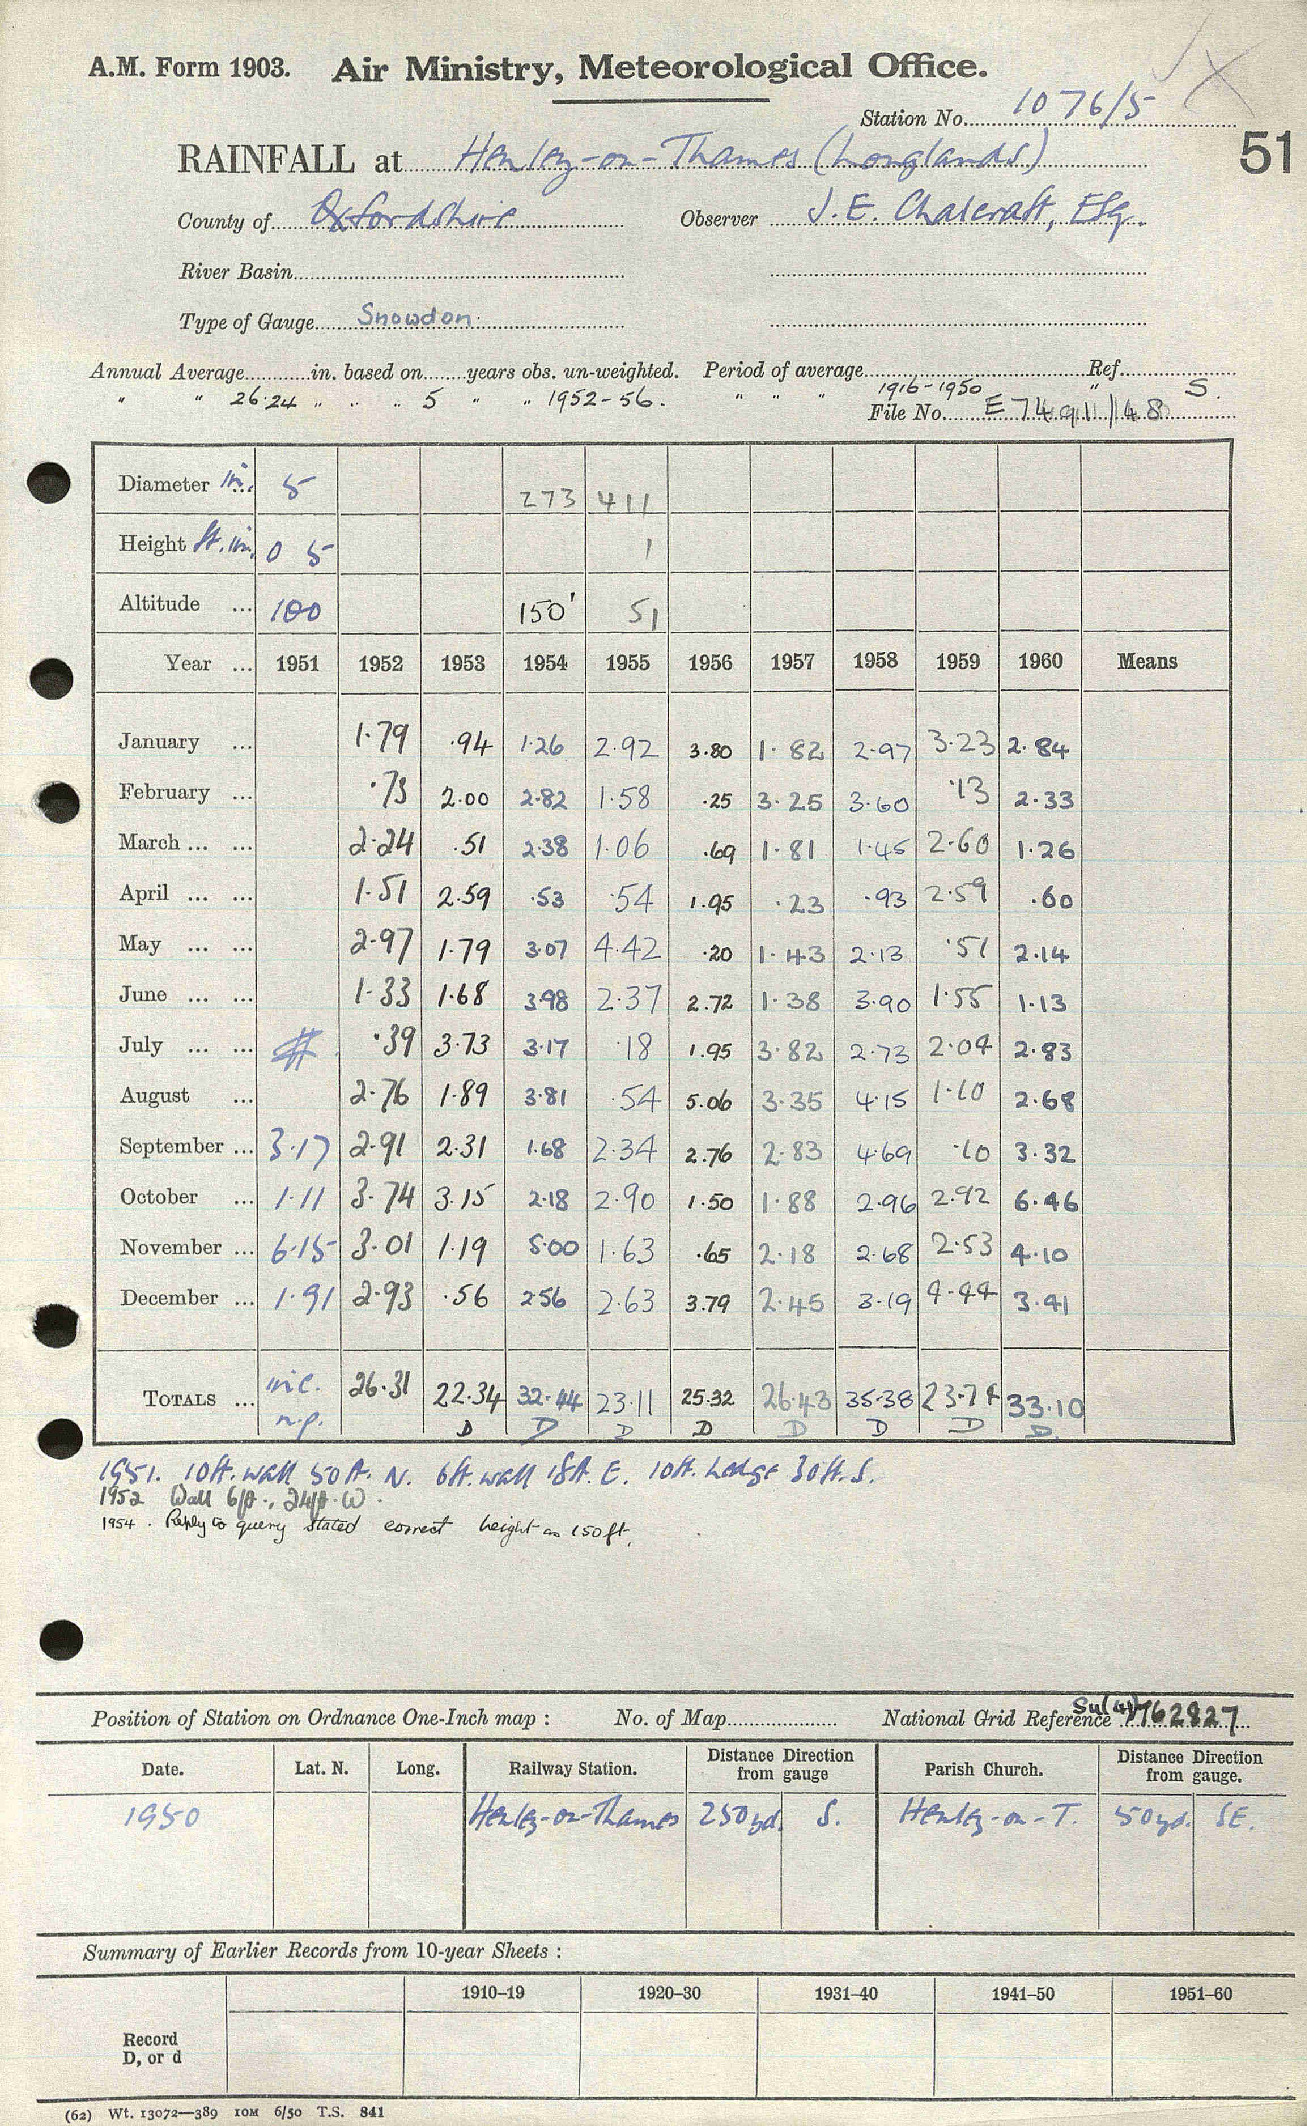 A.M. Form 1903. Air Ministry, Meteorological Office.
Station No. 1076/5
51
RAINFALL at Henley-on-Thames (Longlands)
County of Oxfordshire Observer J.E. Chalcraft, Esq.
River Basin
Type of Gauge Snowdon
Annual Average in. based on years obs. un-weighted. Period of average Ref.
" " 26.24 " " " 5 " " 1952-56. " " " 1916-1950 " S.
File No. E 7491/48
Diameter in. 5 273 411
Height ft. in. 0 5 1
Altitude ... 100 150' 51
Year ... 1951 1952 1953 1954 1955 1956 1957 1958 1959 1960 Means
January ... 1.79 .94 1.26 2.92 3.80 1.82 2.97 3.23 2.84
February ... .73 2.00 2.82 1.58 .25 3.25 3.60 .13 2.33
March ... ... 2.24 .51 2.38 1.06 .69 1.81 1.45 2.60 1.26
April ... ... 1.51 2.59 .53 .54 1.95 .23 .93 2.59 .60
May ... ... 2.97 1.79 3.07 4.42 .20 1.43 2.13 .51 2.14
June ... ... 1.33 1.68 3.98 2.37 2.72 1.38 3.90 1.55 1.13
July ... ... # .39 3.73 3.17 .18 1.95 3.82 2.73 2.04 2.83
August ... 2.76 1.89 3.81 .54 5.06 3.35 4.15 1.10 2.68
September ... 3.17 2.91 2.31 1.68 2.34 2.76 2.83 4.69 .10 3.32
October ... 1.11 3.74 3.15 2.18 2.90 1.50 1.88 2.96 2.92 6.46
November ... 6.15 3.01 1.19 5.00 1.63 .65 2.18 2.68 2.53 4.10
December ... 1.91 2.93 .56 2.56 2.63 3.79 2.45 3.19 4.44 3.41
TOTALS ... inc. 26.31 22.34 32.44 23.11 25.32 26.43 35.38 23.74 33.10
n.p. D D D D D D D D
1951. 10ft. wall 50ft. N. 6ft. wall 18ft. E. 10ft. hedge 30ft. S.
1952 Wall 6ft., 24ft. W.
1954. Reply to query stated correct height as 150ft.
Position of Station on Ordnance One-Inch map : No. of Map National Grid Reference SU(41)762827
Date. Lat. N. Long. Railway Station. Distance Direction from gauge Parish Church. Distance Direction from gauge.
1950 Henley-on-Thames 250yd. S. Henley-on-T. 50yd. SE.
Summary of Earlier Records from 10-year Sheets :
1910–19 1920–30 1931–40 1941–50 1951–60
Record
D, or d
(62) Wt. 13072—389 IOM 6/50 T.S. 841